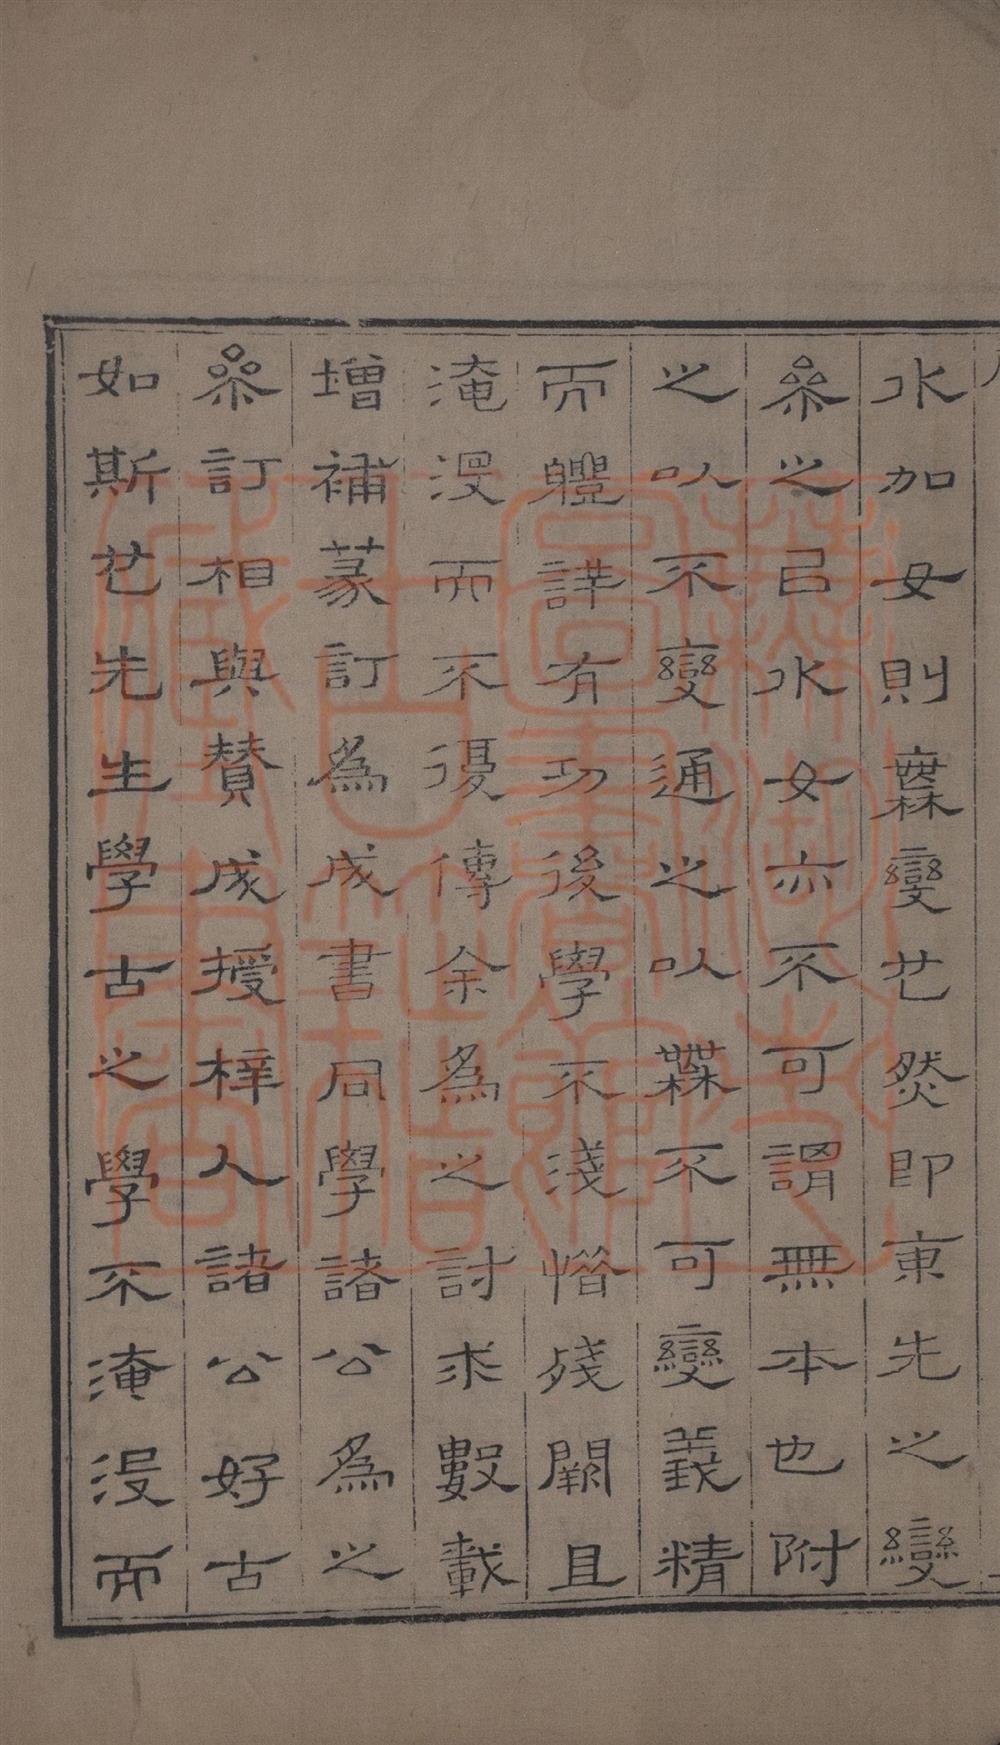 水加女則糵變亡然即東先之變
參之已水女亦不可謂無本也附
之以不變通之以糵不可變義精
而體詳有功後學不淺惜殘闕且
淹沒而不復傳余為之討求數載
增補篆訂為成書同學諸公為之
參訂相與贊成授梓人諸公好古
如斯亡先生學古之學不淹沒而